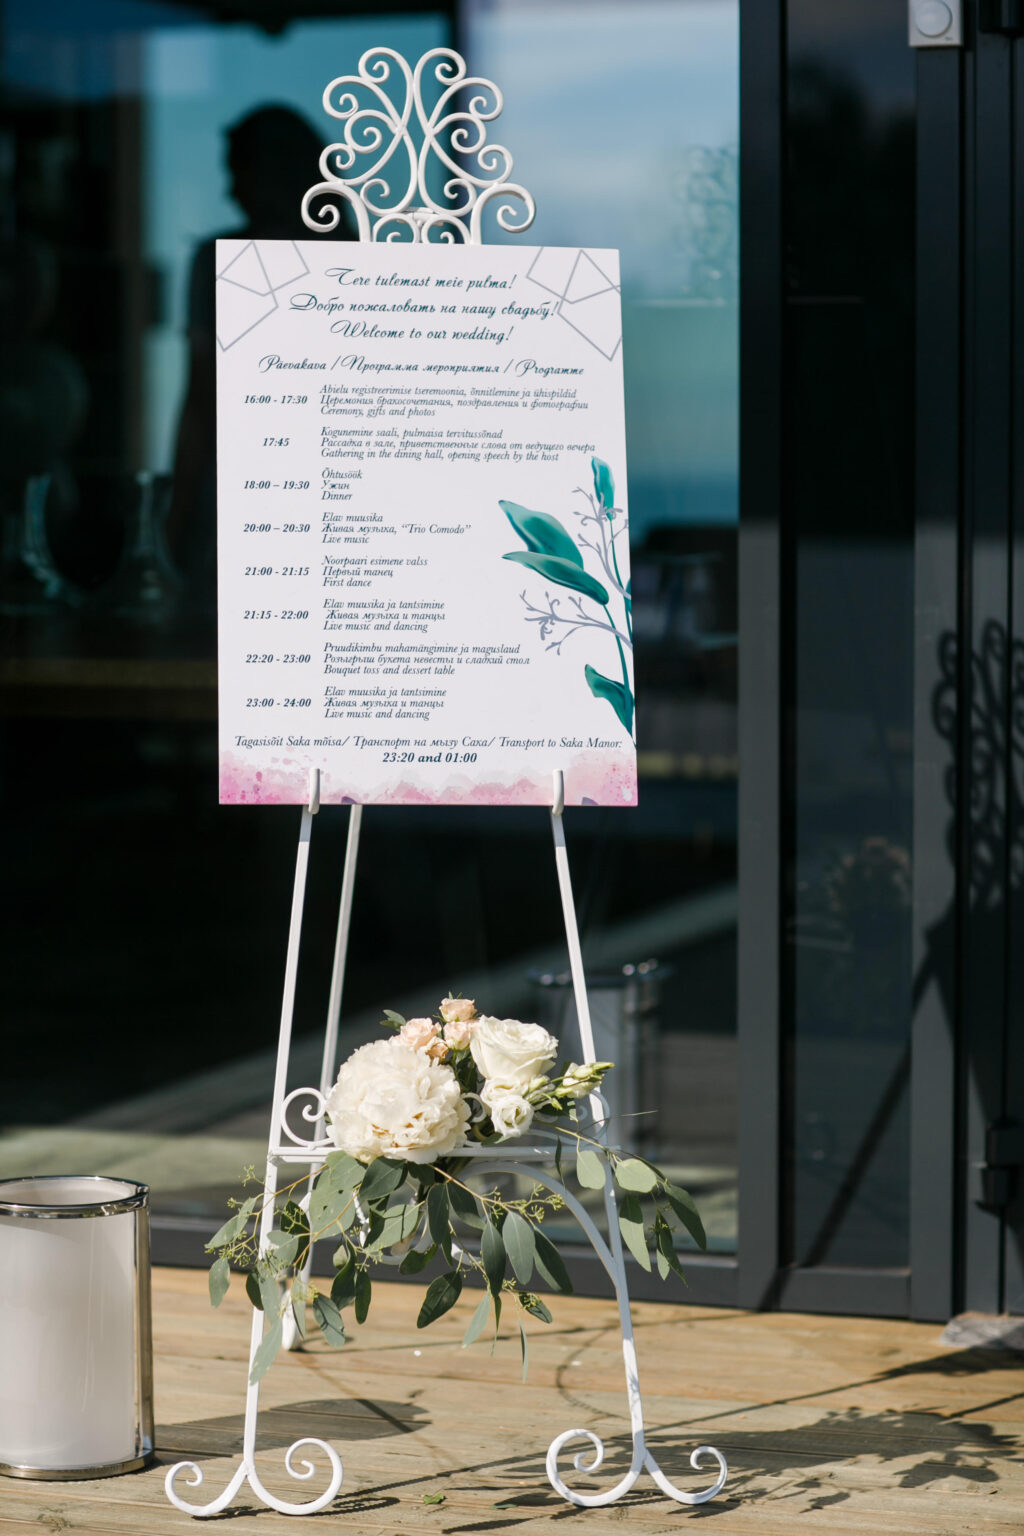 Tere tulemast meie pulma!
Добро пожаловать на нашу свадьбу!
Welcome to our wedding!
Päevakava / Программа мероприятия / Programme
16:00 - 17:30
Abielu registreerimise tseremoonia, õnnitlemine ja ühispildid
Церемония бракосочетания, поздравления и фотографии
Ceremony, gifts and photos
17:45
Kogunemine saali, pulmaisa tervitussõnad
Рассадка в зале, приветственные слова от ведущего вечера
Gathering in the dining hall, opening speech by the host
18:00 – 19:30
Õhtusöök
Ужин
Dinner
20:00 – 20:30
Elav muusika
Живая музыка, “Trio Comodo”
Live music
21:00 - 21:15
Noorpaari esimene valss
Первый танец
First dance
21:15 - 22:00
Elav muusika ja tantsimine
Живая музыка и танцы
Live music and dancing
22:20 - 23:00
Pruudikimbu mahamängimine ja maguslaud
Розыгрыш букета невесты и сладкий стол
Bouquet toss and dessert table
23:00 - 24:00
Elav muusika ja tantsimine
Живая музыка и танцы
Live music and dancing
Tagasisõit Saka mõisa/ Транспорт на мызу Саха/ Transport to Saka Manor:
23:20 and 01:00